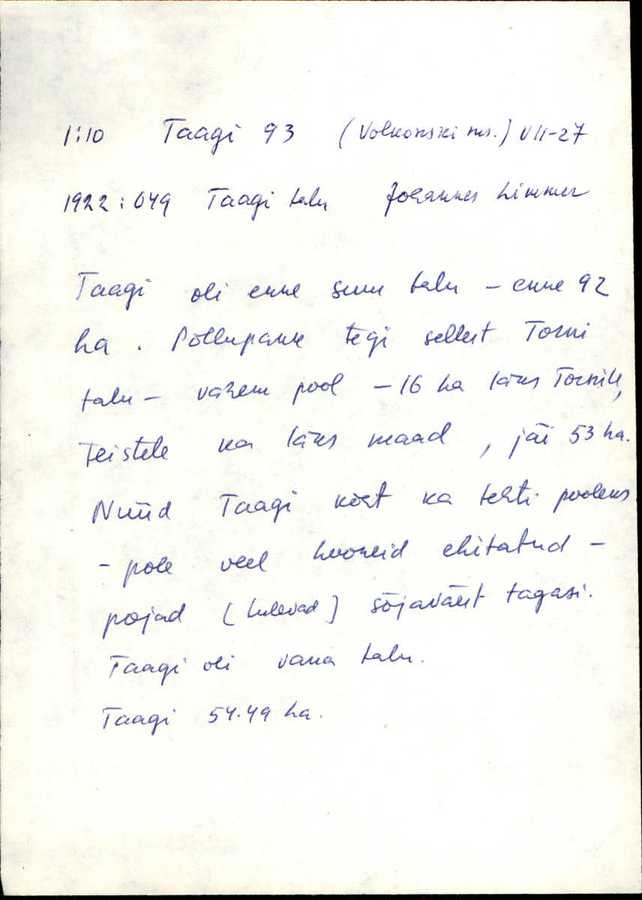 1:10 Taagi 93 (Volkonski ms.) VII-27
1922:049 Taagi talu Johannes Limmer
Taagi oli enne suur talu – enne 92
ha. Põllupank tegi sellest Torni
talu – vähem pool – 16 ha läks Tornile,
teistele ka läks maad, jäi 53 ha.
Nüüd Taagi koht ka tehti pooleks
- pole veel hooneid ehitatud –
pojad (tulevad) sõjaväest tagasi.
Taagi oli vana talu.
Taagi 54.49 ha.